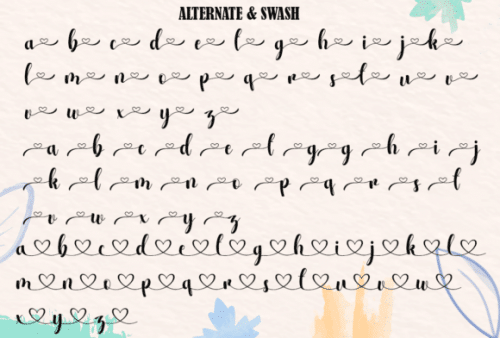 ALTERNATE & SWASH
a b c d e f g h i j k
l m n o p q r s t u v
v w x y z
a b c d e f g g h i j
k l m n o p q r s t
v w x y z
a b c d e f g h i j k l
m n o p q r s t u v w
x y z